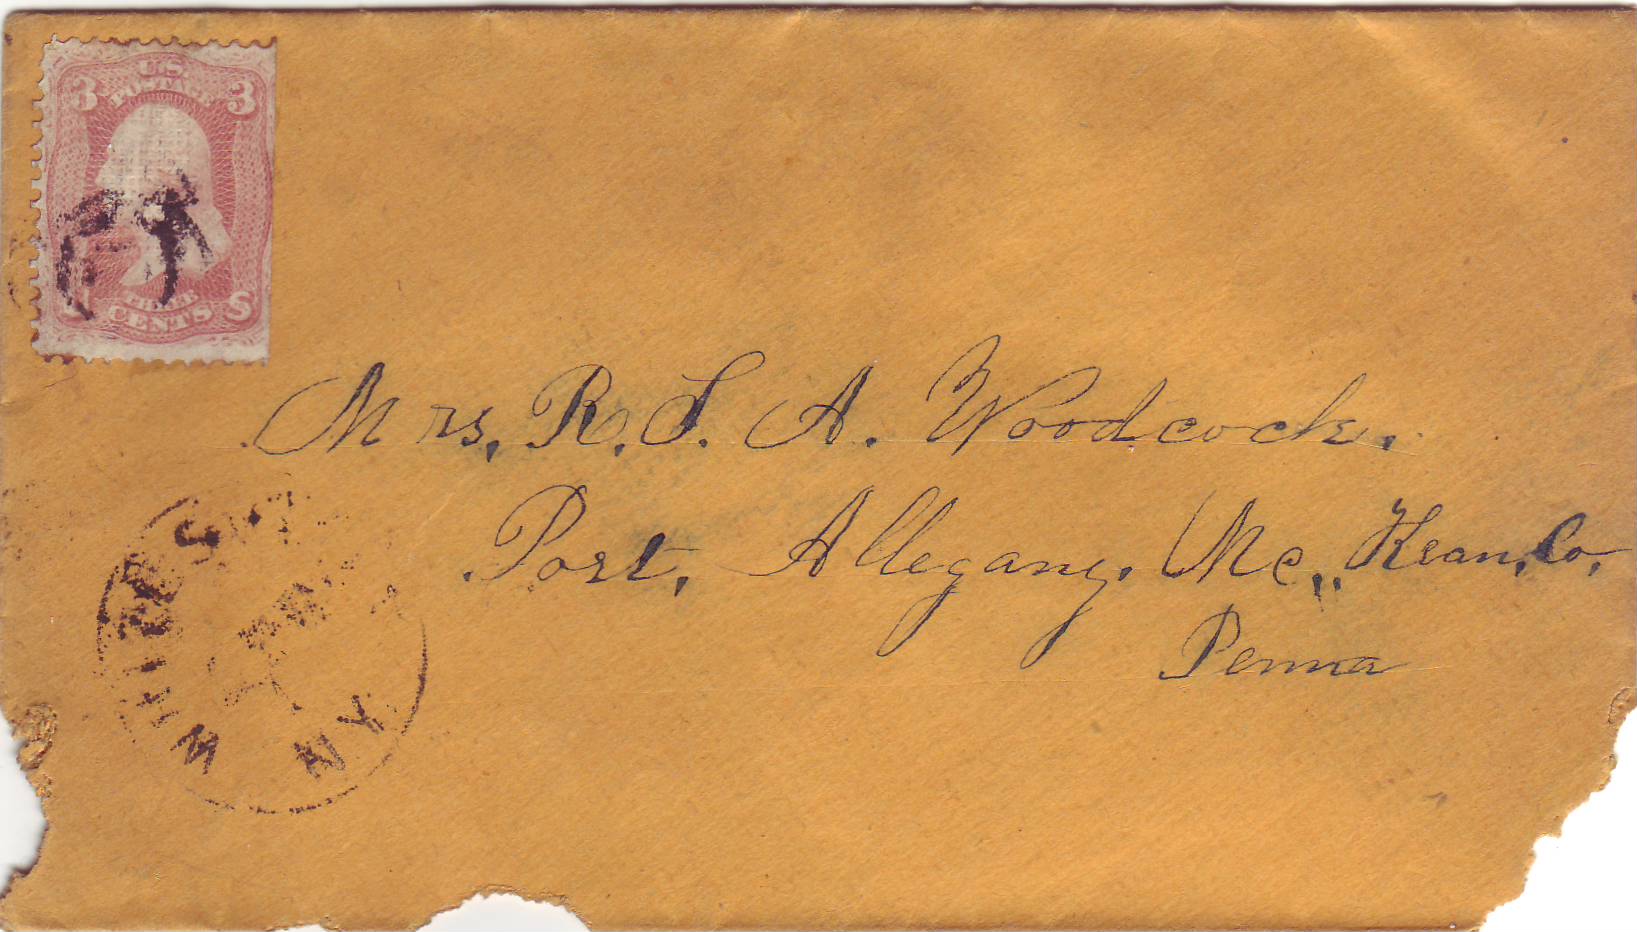 3 U.S. 3
POSTAGE
THREE
CENTS
Mrs, R. S. A. Woodcock.
Port, Allegany. Mc,, Kean, Co,
Penna
WHITES
N.Y.